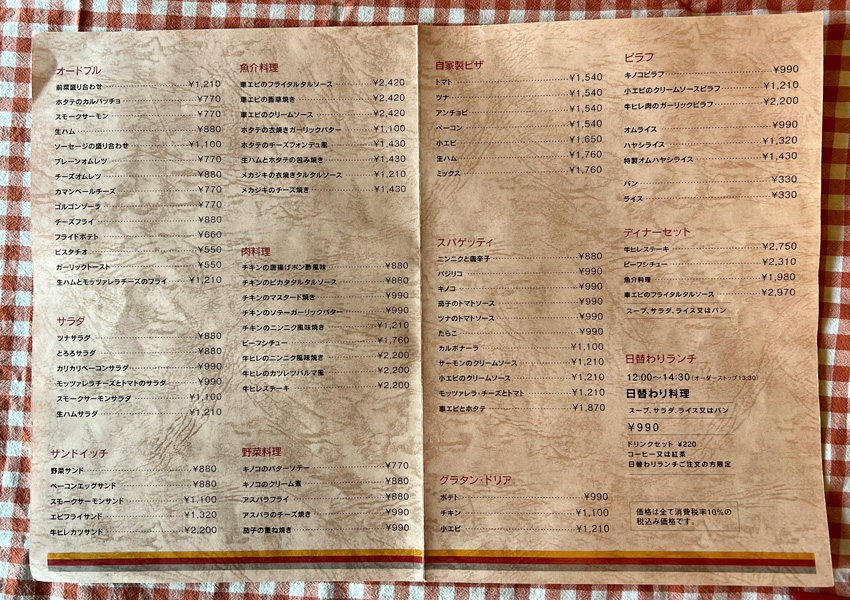 オードブル
前菜盛り合わせ ¥1,210
ホタテのカルパッチョ ¥770
スモークサーモン ¥770
生ハム ¥880
ソーセージの盛り合わせ ¥1,100
プレーンオムレツ ¥770
チーズオムレツ ¥880
カマンベールチーズ ¥770
ゴルゴンゾーラ ¥770
チーズフライ ¥880
フライドポテト ¥660
ピスタチオ ¥550
ガーリックトースト ¥550
生ハムとモッツァレラチーズのフライ ¥1,210
サラダ
ツナサラダ ¥880
とろろサラダ ¥880
カリカリベーコンサラダ ¥990
モッツァレラチーズとトマトのサラダ ¥990
スモークサーモンサラダ ¥1,100
生ハムサラダ ¥1,210
サンドイッチ
野菜サンド ¥880
ベーコンエッグサンド ¥880
スモークサーモンサンド ¥1,100
エビフライサンド ¥1,320
牛ヒレカツサンド ¥2,200
魚介料理
車エビのフライタルタルソース ¥2,420
車エビの香草焼き ¥2,420
車エビのクリームソース ¥2,420
ホタテの衣焼きガーリックバター ¥1,100
ホタテのチーズフォンデュ風 ¥1,430
生ハムとホタテの包み焼き ¥1,430
メカジキの衣焼きタルタルソース ¥1,210
メカジキのチーズ焼き ¥1,430
肉料理
チキンの唐揚げポン酢風味 ¥880
チキンのピカタタルタルソース ¥880
チキンのマスタード焼き ¥990
チキンのソテーガーリックバター ¥990
チキンのニンニク風味焼き ¥1,210
ビーフシチュー ¥1,760
牛ヒレのニンニク風味焼き ¥2,200
牛ヒレのカツレツパルマ風 ¥2,200
牛ヒレステーキ ¥2,200
野菜料理
キノコのバターソテー ¥770
キノコのクリーム煮 ¥880
アスパラフライ ¥880
アスパラのチーズ焼き ¥990
茄子の重ね焼き ¥990
自家製ピザ
トマト ¥1,540
ツナ ¥1,540
アンチョビ ¥1,540
ベーコン ¥1,540
小エビ ¥1,650
生ハム ¥1,760
ミックス ¥1,760
スパゲッティ
ニンニクと唐辛子 ¥880
バジリコ ¥990
キノコ ¥990
茄子のトマトソース ¥990
ツナのトマトソース ¥990
たらこ ¥990
カルボナーラ ¥1,100
サーモンのクリームソース ¥1,210
小エビのクリームソース ¥1,210
モッツァレラ・チーズとトマト ¥1,210
車エビとホタテ ¥1,870
グラタン・ドリア
ポテト ¥990
チキン ¥1,100
小エビ ¥1,210
ピラフ
キノコピラフ ¥990
小エビのクリームソースピラフ ¥1,210
牛ヒレ肉のガーリックピラフ ¥2,200
オムライス ¥990
ハヤシライス ¥1,320
特製オムハヤシライス ¥1,430
パン ¥330
ライス ¥330
ディナーセット
牛ヒレステーキ ¥2,750
ビーフシチュー ¥2,310
魚介料理 ¥1,980
車エビのフライタルタルソース ¥2,970
スープ、サラダ、ライス又はパン
日替わりランチ
12:00〜14:30(オーダーストップ13:30)
日替わり料理
スープ、サラダ、ライス又はパン
¥990
ドリンクセット ¥220
コーヒー又は紅茶
日替わりランチご注文の方限定
価格は全て消費税率10%の
税込み価格です。